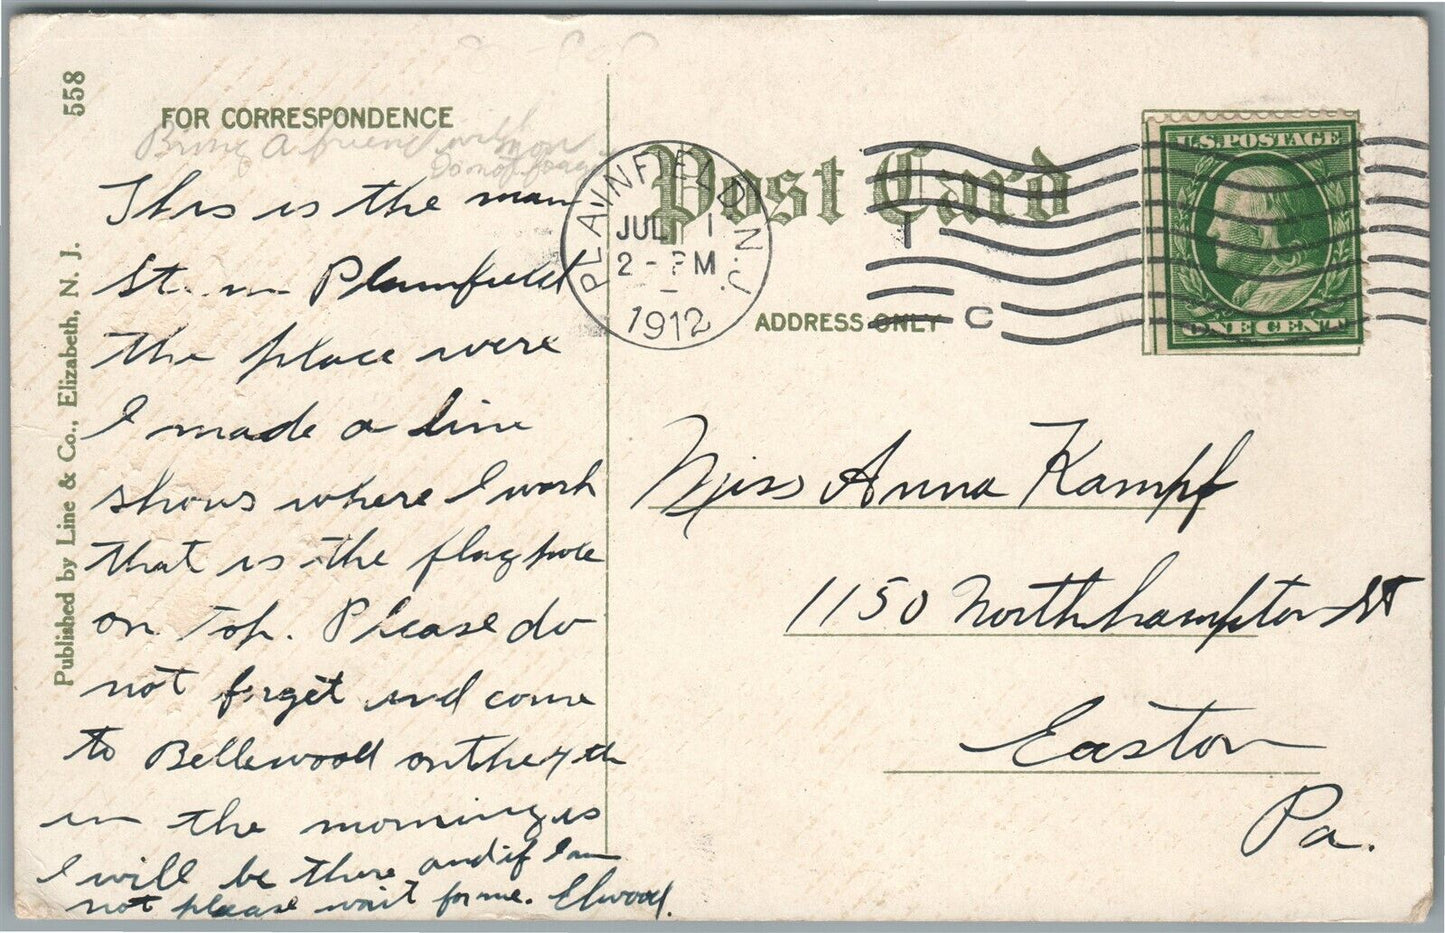 558
FOR CORRESPONDENCE
Bring a friend
Do not forget
This is the main
St. in Plainfield
the place were
I made a line
shows where I work
that is the flag pole
on top. Please do
not forget and come
to Bellewood on the 4th
in the morning as
I will be there and if I am
not please wait for me. Elwood.
Published by Line & Co., Elizabeth, N. J.
Post Card
ADDRESS ONLY
PLAINFIELD N.J.
JUL 1
2 - PM
1912
1 C
U.S. POSTAGE
ONE CENT
Miss Anna Kampf
1150 Northhampton St
Easton
Pa.